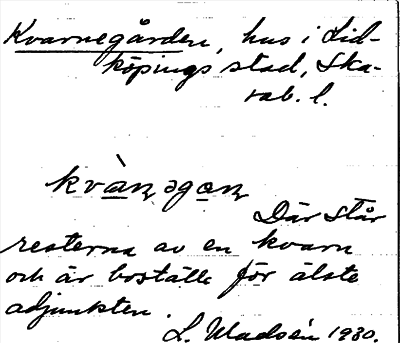 Kvarnegården, hus i Lid-
köpings stad, Ska-
rab. l.
kvàṇəgɑṇ
Där står
resterna av en kvarn
och är boställe för älste
adjunkten.
L. Madsén 1930.